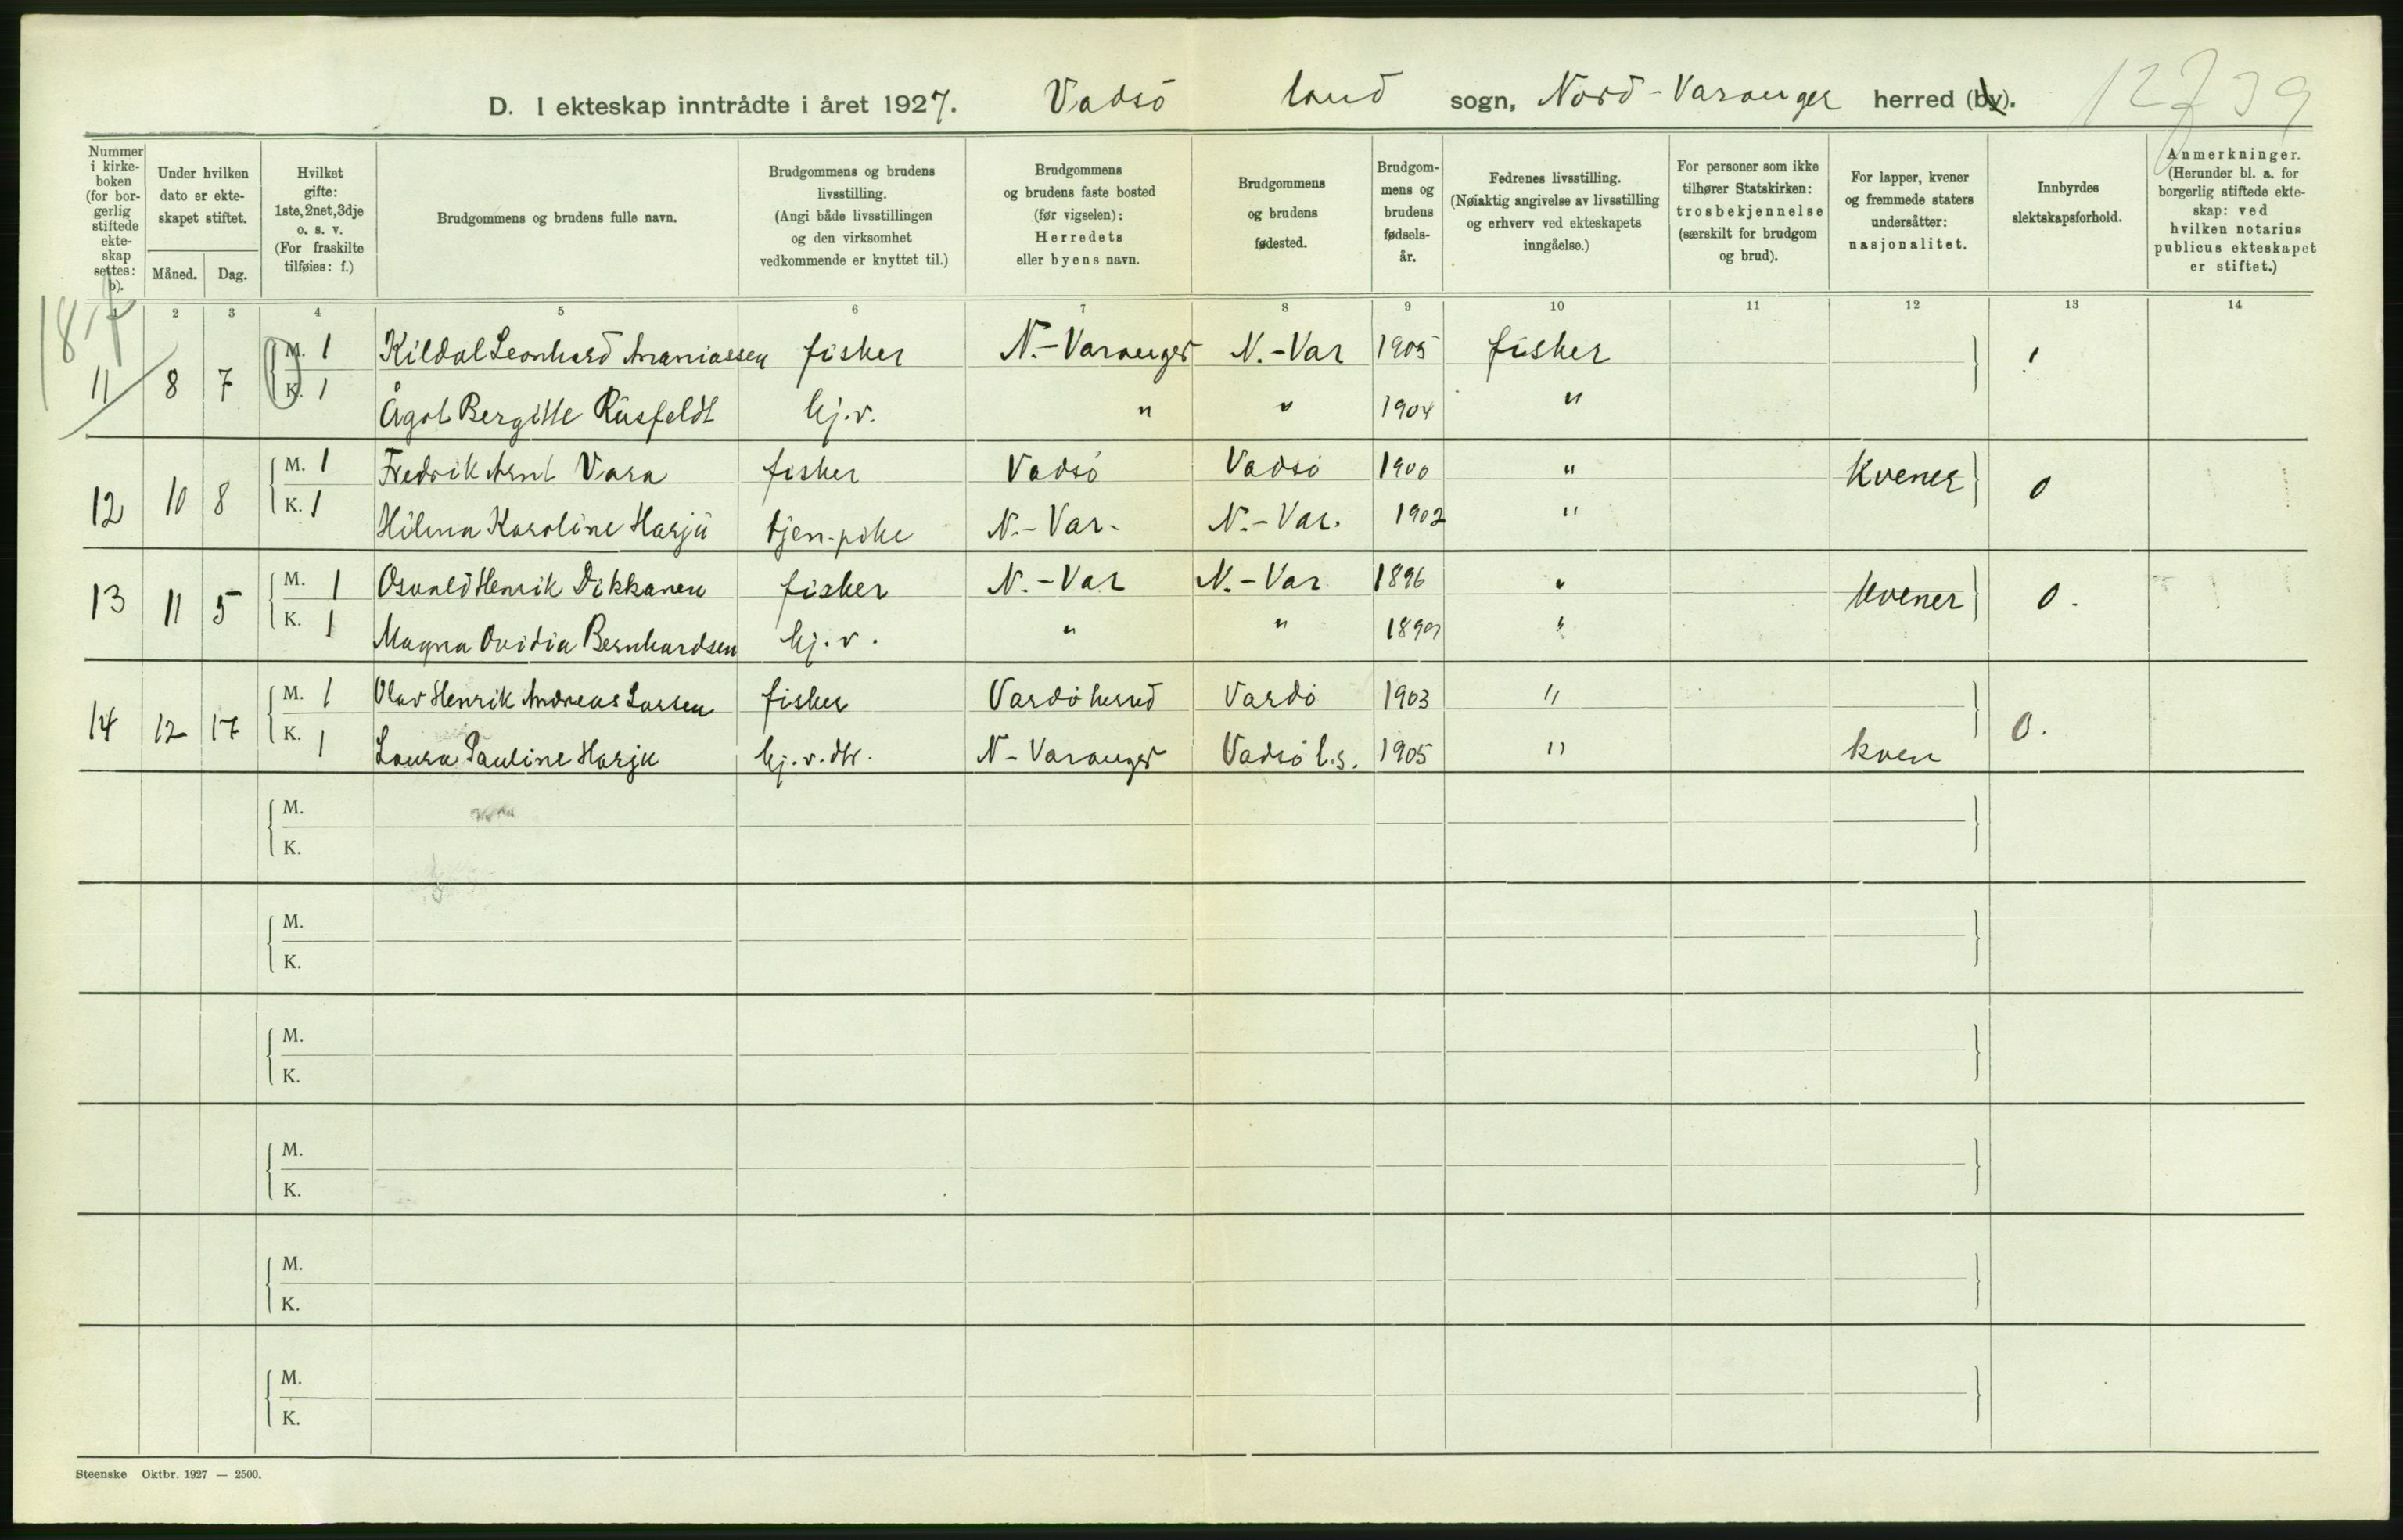 D. I ekteskap inntrådte i året 1927. Vadsö land sogn, Nord-Varanger herred (by).
12 39
Nummer i kirke-boken (for bor-gerlig stiftede ekte-skap settes: b).
Under hvilken dato er ekte-skapet stiftet.
Måned. Dag.
Hvilket gifte: 1ste, 2net, 3dje o. s. v. (For fraskilte tilføies: f.)
Brudgommens og brudens fulle navn.
Brudgommens og brudens livsstilling. (Angi både livsstillingen og den virksomhet vedkommende er knyttet til.)
Brudgommens og brudens faste bosted (før vigselen): Herredets eller byens navn.
Brudgommens og brudens fødested.
Brudgom-mens og brudens fødsels-år.
Fedrenes livsstilling. (Nøiaktig angivelse av livsstilling og erhverv ved ekteskapets inngåelse.)
For personer som ikke tilhører Statskirken: trosbekjennelse (særskilt for brudgom og brud).
For lapper, kvener og fremmede staters undersåtter: nasjonalitet.
Innbyrdes slektskapsforhold.
Anmerkninger. (Herunder bl. a. for borgerlig stiftede ekte-skap: ved hvilken notarius publicus ekteskapet er stiftet.)
1 2 3 4 5 6 7 8 9 10 11 12 13 14
M. 1 Kildal Leonhard Ananiassen fisker N.-Varanger N.-Var 1905 fisker
11 8 7 K. 1 Ågot Bergitte Rusfeldt hj.v. " " 1904 "
M. 1 Fredrik Arnt Vara fisker Vadsö Vadsö 1900 " Kvener 0
12 10 8 K. 1 Hilma Karoline Harju tjen.pike N.-Var. N.-Var. 1902 "
M. 1 Osvald Henrik Dikkanen fisker N.-Var N.-Var 1896 " kvener 0.
13 11 5 K. 1 Magna Ovidia Bernhardsen hj.v. " " 1899 "
M. 1 Olav Henrik Andreas Larsen fisker Vardö herred Vardö 1903 "
14 12 17 K. 1 Laura Pauline Harju hj.v.dtr. N-Varanger Vadsö l.s. 1905 " kven 0.
M.
K.
M.
K.
M.
K.
M.
K.
M.
K.
M.
K.
Steenske Oktbr. 1927 — 2500.